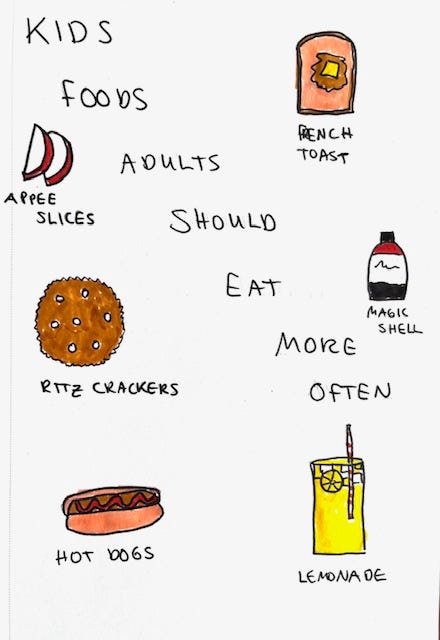 KIDS
FOODS
ADULTS
SHOULD
EAT
MORE
OFTEN
FRENCH
TOAST
APPEE
SLICES
MAGIC
SHELL
RITZ CRACKERS
HOT DOGS
LEMONADE